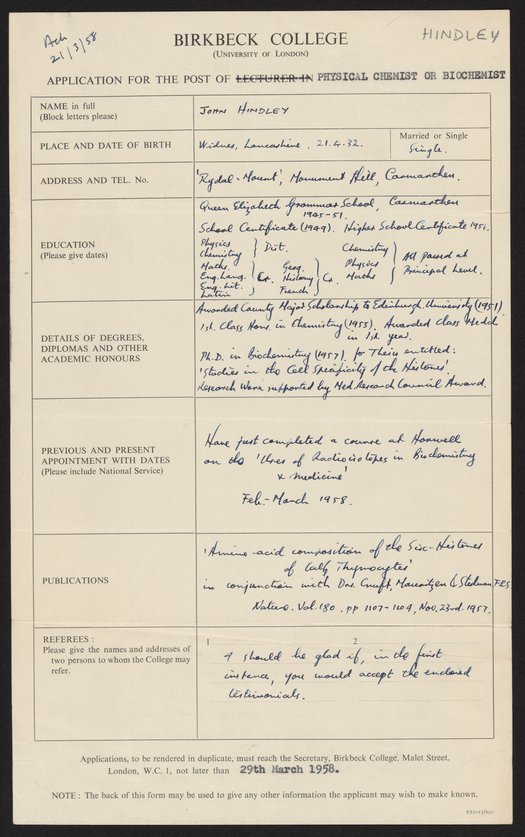 Ack
21/3/58
HINDLEY
BIRKBECK COLLEGE
(UNIVERSITY OF LONDON)
APPLICATION FOR THE POST OF LECTURER IN PHYSICAL CHEMIST OR BIOCHEMIST
NAME in full
(Block letters please)
JOHN HINDLEY
PLACE AND DATE OF BIRTH
Widnes, Lancashire. 21.4.32.
Married or Single
Single.
ADDRESS AND TEL. No.
'Rydal-Mount', Monument Hill, Carmarthen.
EDUCATION
(Please give dates)
Queen Elizabeth Grammar School, Carmarthen
1945-51.
School Certificate (1949). Higher School Certificate 1951.
Physics
Chemistry
Maths
Eng. Lang.
Eng. Lit.
Latin
Dist.
Cr.
Geog.
History
French
Cr.
Chemistry
Physics
Maths
All passed at
Principal Level.
DETAILS OF DEGREES,
DIPLOMAS AND OTHER
ACADEMIC HONOURS
Awarded County Major Scholarship to Edinburgh University (1951)
1st. Class Hons. in Chemistry (1955). Awarded Class Medal
in 1st year.
Ph.D. in biochemistry (1957). for Thesis entitled:
'Studies in the Cell Specificity of the Histones'.
Research Work supported by Med. Research Council Award.
PREVIOUS AND PRESENT
APPOINTMENT WITH DATES
(Please include National Service)
Have just completed a course at Harwell
on the 'Uses of Radioisotopes in Biochemistry
& Medicine'
Feb.-March 1958.
PUBLICATIONS
'Amino-acid composition of the Six-Histones
of Calf Thymocytes'
in conjunction with Drs. Cruft, Mauritzen & Stedman F.R.S.
Nature. Vol. 180. pp 1107-1109, Nov. 23rd. 1957.
REFEREES :
Please give the names and addresses of
two persons to whom the College may
refer.
1
2
I should be glad if, in the first
instance, you would accept the enclosed
testimonials.
Applications, to be rendered in duplicate, must reach the Secretary, Birkbeck College, Malet Street,
London, W.C. 1, not later than 29th March 1958.
NOTE : The back of this form may be used to give any other information the applicant may wish to make known.